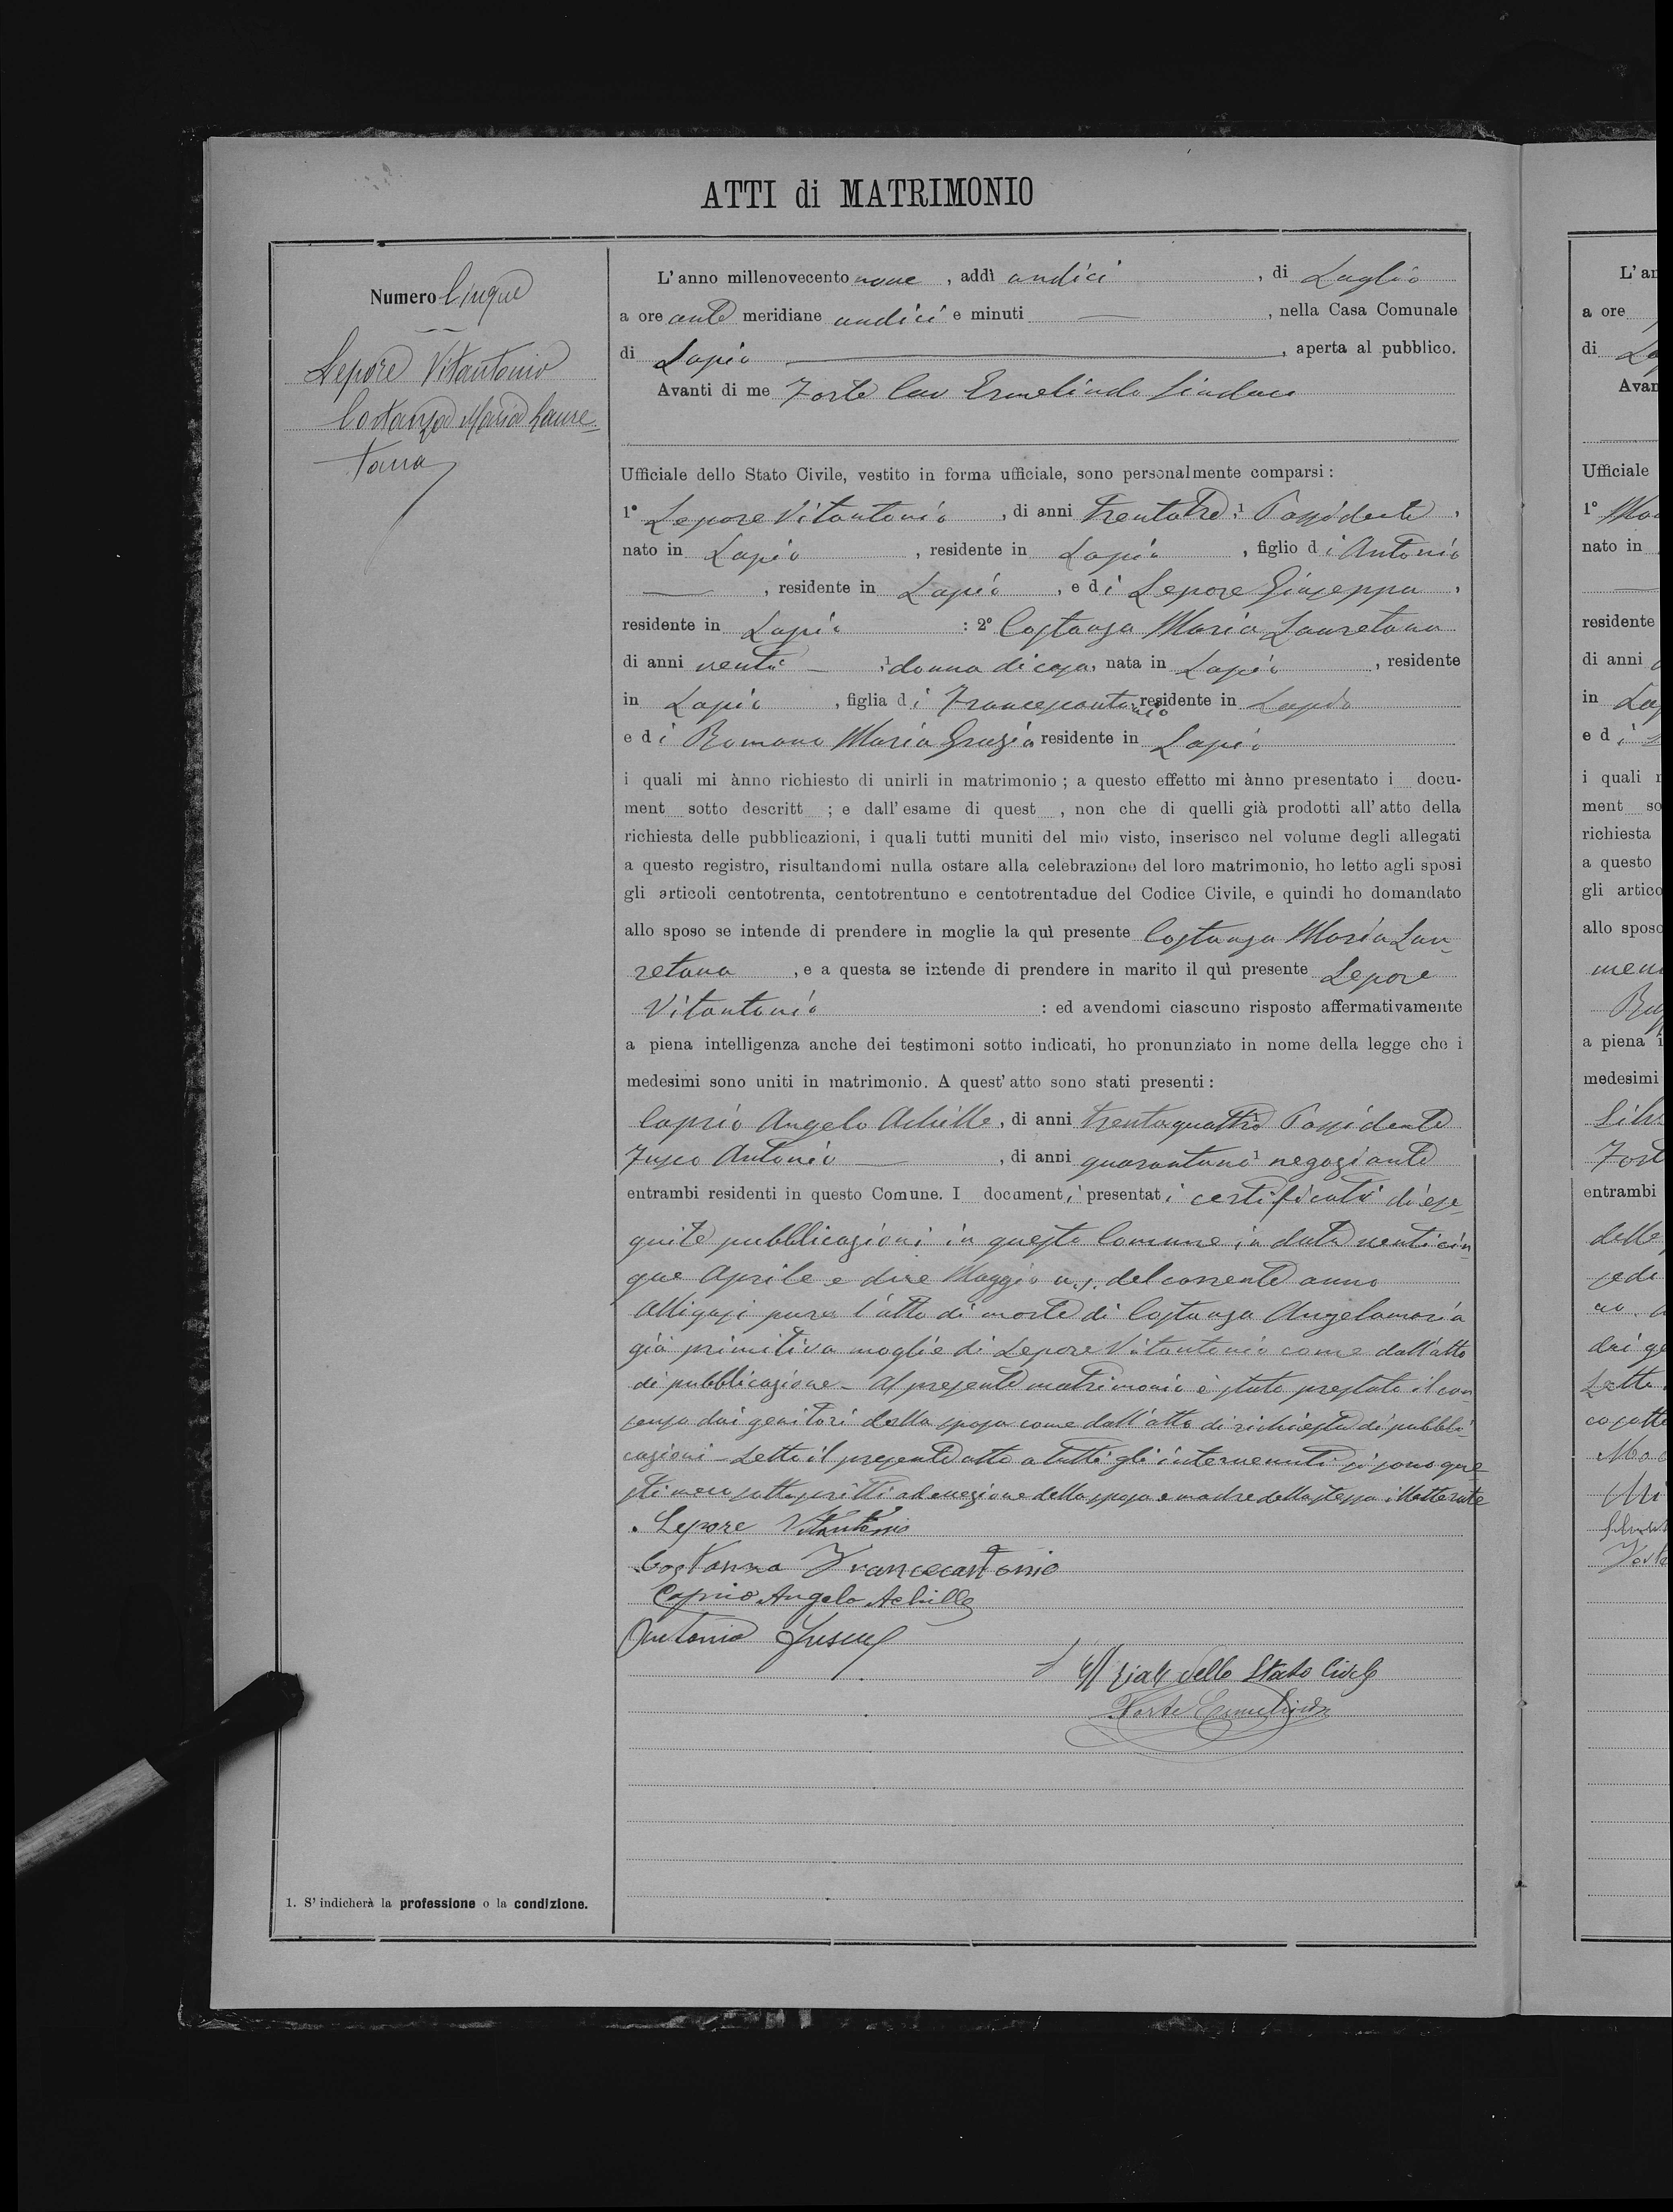 ATTI di MATRIMONIO
Numero Cinque
Lepore Vitantonio
Costanza Maria Laure-
tana
L'anno millenovecento nove, addì undici, di Luglio
a ore ante meridiane undici e minuti —, nella Casa Comunale
di Lapio —, aperta al pubblico.
Avanti di me Forte Cav Ermelindo Sindaco
Ufficiale dello Stato Civile, vestito in forma ufficiale, sono personalmente comparsi:
1° Lepore Vitantonio, di anni trentatre, 1 Possidente,
nato in Lapio, residente in Lapio, figlio di Antonio
—, residente in Lapio, e di Lepore Giuseppa,
residente in Lapio: 2° Costanza Maria Lauretana
di anni venti —, 1 donna di casa, nata in Lapio, residente
in Lapio, figlia di Francescantonio residente in Lapio
e di Romano Maria Grazia residente in Lapio
i quali mi ànno richiesto di unirli in matrimonio; a questo effetto mi ànno presentato i docu-
ment sotto descritt ; e dall'esame di quest , non che di quelli già prodotti all'atto della
richiesta delle pubblicazioni, i quali tutti muniti del mio visto, inserisco nel volume degli allegati
a questo registro, risultandomi nulla ostare alla celebrazione del loro matrimonio, ho letto agli sposi
gli articoli centotrenta, centotrentuno e centotrentadue del Codice Civile, e quindi ho domandato
allo sposo se intende di prendere in moglie la quì presente Costanza Maria Lau-
retana, e a questa se intende di prendere in marito il quì presente Lepore
Vitantonio: ed avendomi ciascuno risposto affermativamente
a piena intelligenza anche dei testimoni sotto indicati, ho pronunziato in nome della legge che i
medesimi sono uniti in matrimonio. A quest'atto sono stati presenti:
Caprio Angelo Achille, di anni trentaquattro 1 Possidente
Fusco Antonio —, di anni quarantuno 1 negoziante
entrambi residenti in questo Comune. I documenti presentati certificati di ese-
guite pubblicazioni in questo Comune in data venticin-
que Aprile e due Maggio u.s. del corrente anno
Alligasi pure l'atto di morte di Costanza Angelamaria
già primitiva moglie di Lepore Vitantonio come dall'atto
di pubblicazione - Al presente matrimonio è stato prestato il con
senso dai genitori della sposa come dall'atto di richiesta di pubbli-
cazioni - Letto il presente atto a tutti gli intervenuti si sono que-
sti meco sottoscritti ad eccezione della sposa e madre della stessa illetterate
Lepore Vitantonio
Costanza Francecantonio
Caprio Angelo Achille
Antonio Fusco
L'Uffiziale dello Stato Civile
Forte Ermelindo
1. S'indicherà la professione o la condizione.
L'an
a ore
di La
Avan
Ufficiale
1° Ma
nato in
residente
di anni
in Lap
e di
i quali
ment so
richiesta
a questo
gli artico
allo sposo
a piena i
medesimi
Fort
entrambi
delle